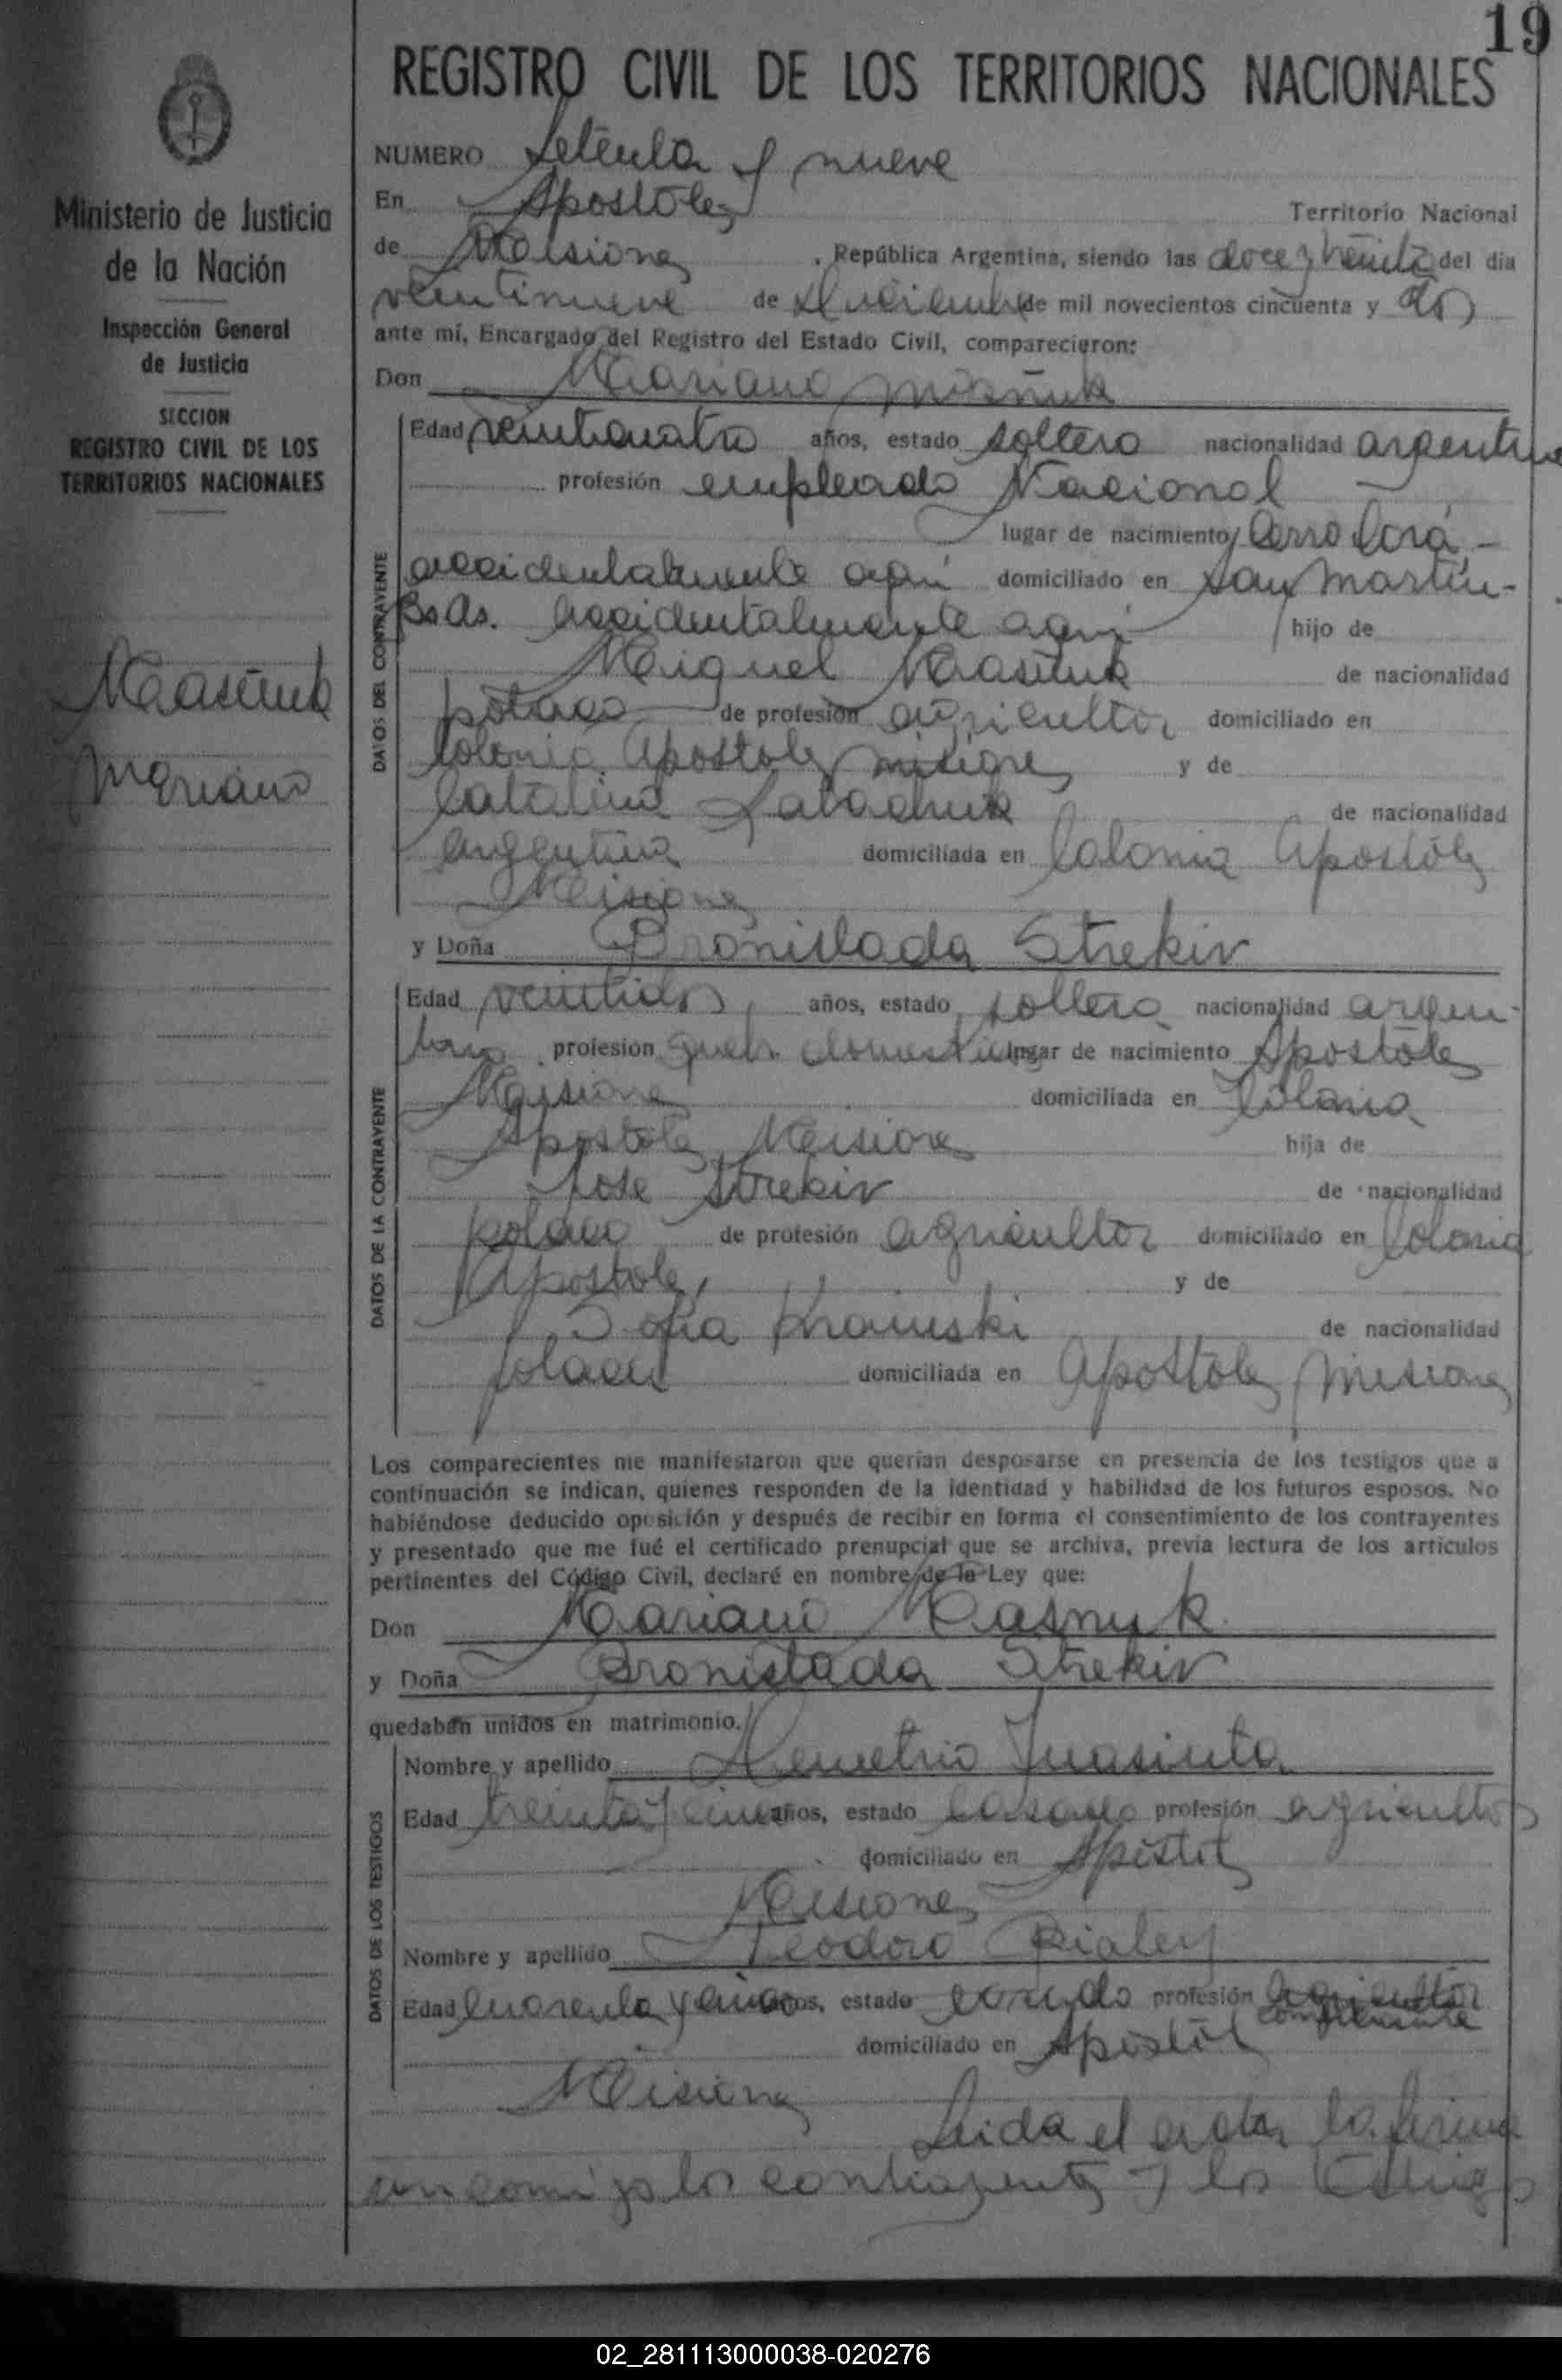 19
REGISTRO CIVIL DE LOS TERRITORIOS NACIONALES
Ministerio de Justicia
de la Nación
Inspección General
de Justicia
SECCION
REGISTRO CIVIL DE LOS
TERRITORIOS NACIONALES
Masnuk
Mariano
NUMERO Setenta y nueve
En Apostoles Territorio Nacional
de Misiones, República Argentina, siendo las doce y treinta del día
veintinueve de de mil novecientos cincuenta y dos
ante mí, Encargado del Registro del Estado Civil, comparecieron:
Don Mariano Masnuk
DATOS DEL CONTRAYENTE
Edad veinticuatro años, estado soltero nacionalidad argentino
profesión empleado Nacional
lugar de nacimiento Cerro Corá -
accidentalmente aquí domiciliado en San Martín -
Bs As. accidentalmente aquí hijo de
Miguel Masnuk de nacionalidad
polaco de profesión agricultor domiciliado en
Colonia Apostoles Misiones y de
Catalina de nacionalidad
argentina domiciliada en Colonia Apostoles
Misiones
y Doña Bronislada Strekiv
DATOS DE LA CONTRAYENTE
Edad veintidos años, estado soltera nacionalidad argen-
tina profesión queh. domesticos lugar de nacimiento Apostoles
Misiones domiciliada en Colonia
Apostoles Misiones hija de
Jose Strekiv de nacionalidad
polaco de profesión agricultor domiciliado en Colonia
Apostoles, y de
Sofia de nacionalidad
polaca domiciliada en Apostoles Misiones
Los comparecientes me manifestaron que querían desposarse en presencia de los testigos que a
continuación se indican, quienes responden de la identidad y habilidad de los futuros esposos. No
habiéndose deducido oposición y después de recibir en forma el consentimiento de los contrayentes
y presentado que me fué el certificado prenupcial que se archiva, previa lectura de los artículos
pertinentes del Código Civil, declaré en nombre de la Ley que:
Don Mariano Masnuk
y Doña Bronislada Strekiv
quedaban unidos en matrimonio.
DATOS DE LOS TESTIGOS
Nombre y apellido Demetrio
Edad treinta y cinco años, estado casado profesión agricultor
domiciliado en Apostoles
Misiones
Nombre y apellido Teodoro
Edad cuarenta y cinco años, estado casado profesión agricultor
comerciante
domiciliado en Apostoles
Misiones
Leida el acta la firman
conmigo los contrayentes y los testigos
02_281113000038-020276